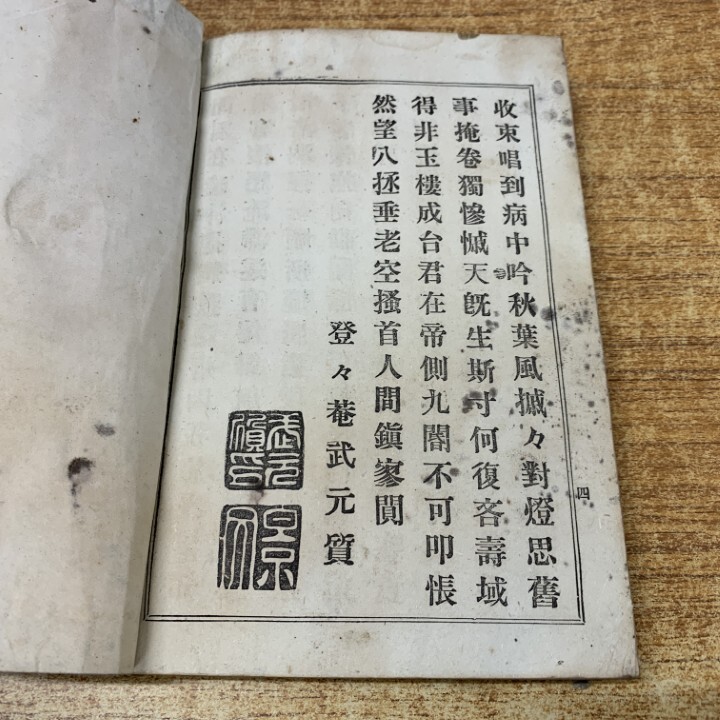 收束唱到病中吟秋葉風摵々對燈思舊
事掩卷獨慘慽天旣生斯才何復吝壽域
得非玉樓成台君在帝側九閽不可叩悵
然望八拯垂老空搔首人間鎭寥閴
登々菴武元質
四